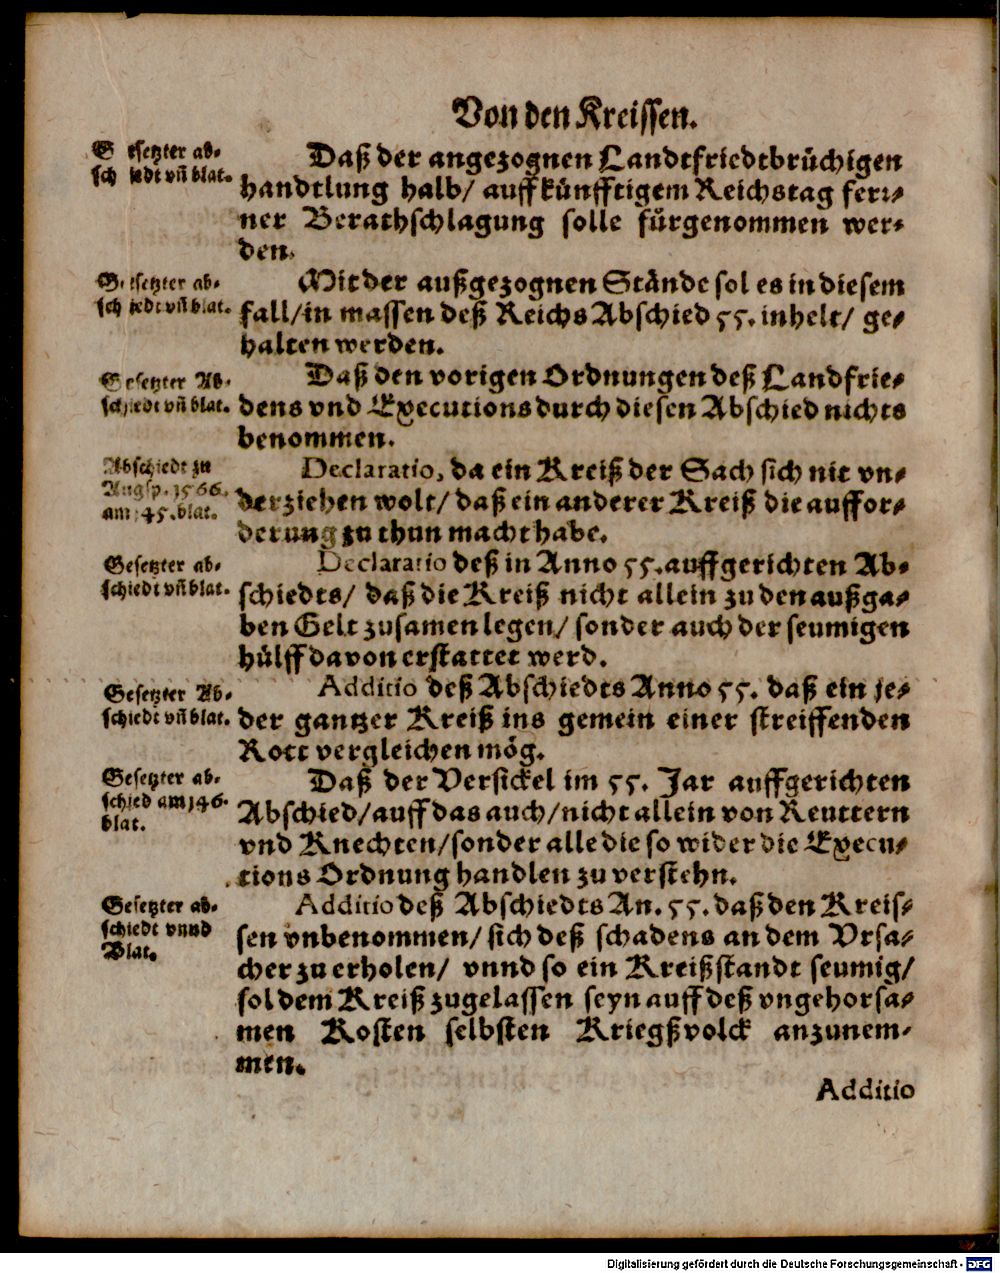 Von den Kreissen.
Gesetzter ab-
schiedt vñ blat.
Daß der angezognen Landtfriedtbrüchigen
handtlung halb/ auff künfftigem Reichstag fer-
ner Berathschlagung solle fürgenommen wer-
den.
Gesetzter ab-
schiedt vñ blat.
Mit der außgezognen Stände sol es in diesem
fall/ in massen deß Reichs Abschied 55. inhelt/ ge-
halten werden.
Gesetzter Ab-
schiedt vñ blat.
Daß den vorigen Ordnungen deß Landfrie-
dens vnd Executions durch diesen Abschied nichts
benommen.
Abschiedt zu
Augsp. 1566.
am 145. blat.
Declaratio, da ein Kreiß der Sach sich nit vn-
derziehen wolt/ daß ein anderer Kreiß die auffor-
derung zu thun macht habe.
Gesetzter ab-
schiedt vñ blat.
Declaratio deß in Anno 55. auffgerichten Ab-
schiedts/ daß die Kreiß nicht allein zu den außga-
ben Gelt zusamen legen/ sonder auch der seumigen
hülff davon erstattet werd.
Gesetzter Ab-
schiedt vñ blat.
Additio deß Abschiedts Anno 55. daß ein je-
der gantzer Kreiß ins gemein einer streiffenden
Rott vergleichen mög.
Gesetzter ab-
schied am 146.
blat.
Daß der Versickel im 55. Jar auffgerichten
Abschied/ auff das auch/ nicht allein von Reuttern
vnd Knechten/ sonder alle die so wider die Execu-
tions Ordnung handlen zu verstehn.
Gesetzter ab-
schiedt vnnd
Blat.
Additio deß Abschiedts An. 55. daß den Kreis-
sen vnbenommen/ sich deß schadens an dem Vrsa-
cher zu erholen/ vnnd so ein Kreißstandt seumig/
sol dem Kreiß zugelassen seyn auff deß vngehorsa-
men Kosten selbsten Kriegßvolck anzunem-
men.
Additio
Digitalisierung gefördert durch die Deutsche Forschungsgemeinschaft - DFG